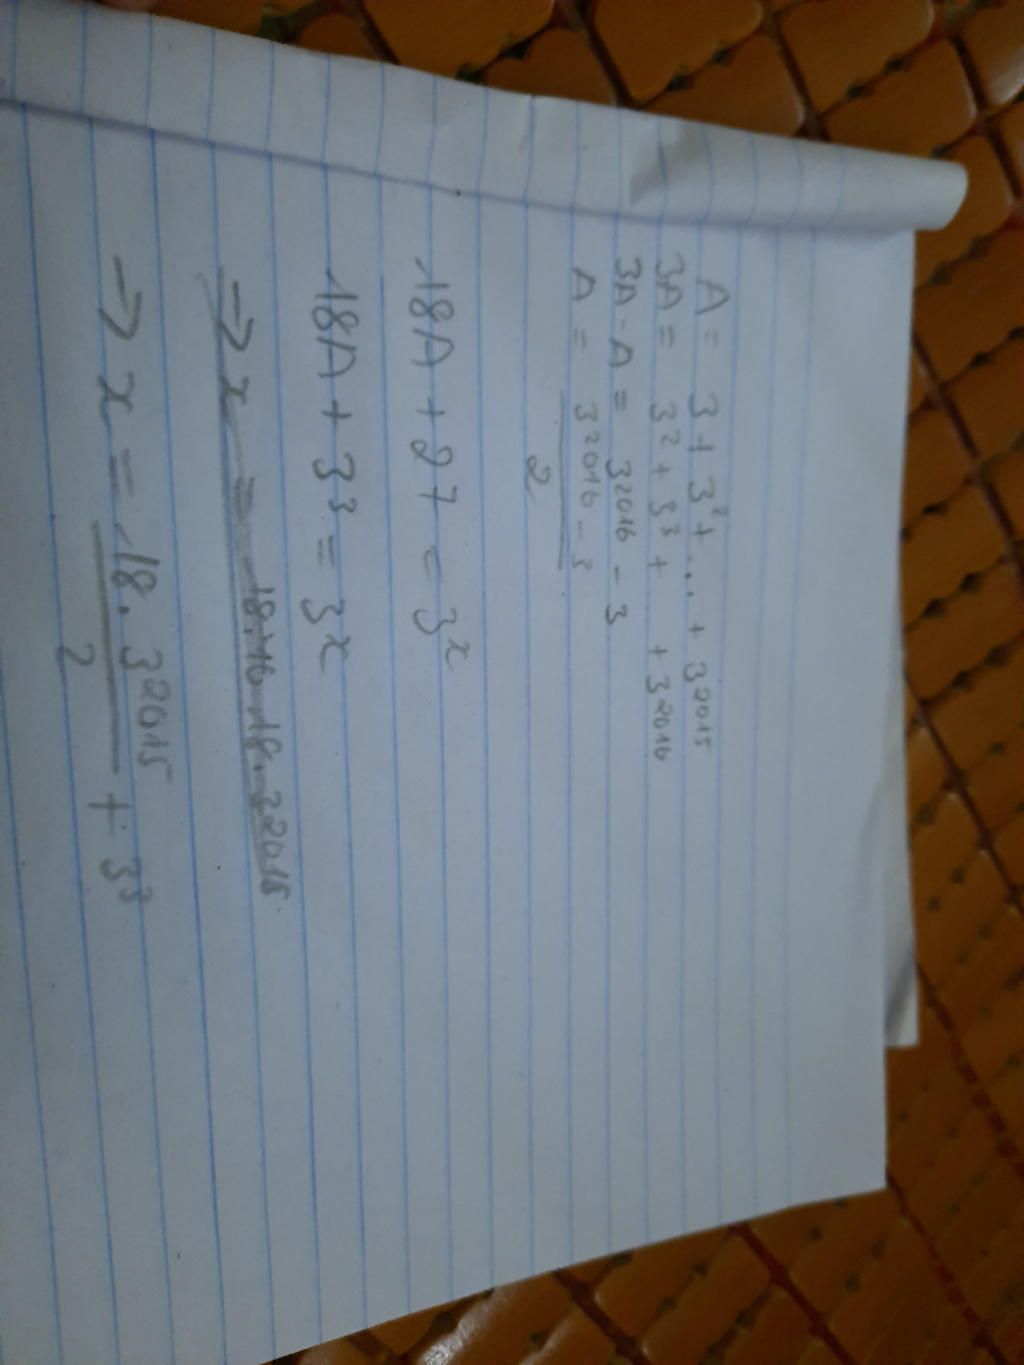 A = 3 + 3² + ... + 3²⁰¹⁵
3A = 3² + 3³ + + 3²⁰¹⁶
3A - A = 3²⁰¹⁶ - 3
A = 3²⁰¹⁶ - 3
2
18A + 27 = 3ˣ
18A + 3³ = 3ˣ
→ x =
→ x = 18.3²⁰¹⁵ + 3³
2